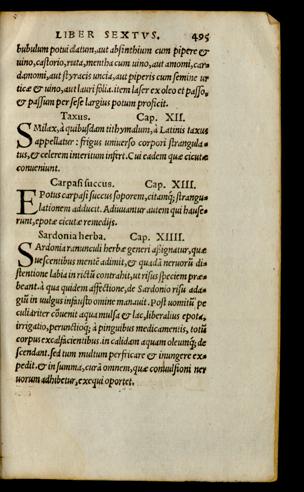 LIBER SEXTVS. 495
bubulum potui datum, aut absinthium cum pipere &
uino, castorio, ruta, mentha cum uino, aut amomi, car-
damomi, aut styracis uncia, aut piperis cum semine ur
ticæ & uino, aut lauri folia. item laser ex oleo et passo,
& passum per sese largius potum proficit.
Taxus. Cap. XII.
SMilax, à quibusdam tithymalum, à Latinis taxus
appellatur: frigus uniuerso corpori strangula-
tus, & celerem interitum infert. Cui eadem quæ cicutæ
conueniunt.
Carpasi succus. Cap. XIII.
EPotus carpasi succus soporem, citamq́; strangu-
lationem adducit. Adiuuantur autem qui hause-
runt, epotæ cicutæ remedijs.
Sardonia herba. Cap. XIIII.
SArdonia ranunculi herbæ generi aßignatur, quæ
uescentibus mentē adimit, & quadā neruorū di-
stentione labia in rictū contrahit, ut risus speciem præ-
beant. à qua quidem affectione, de Sardonio risu ada-
giū in uulgus infausto omine manauit. Post uomitū pe
culiariter cōuenit aqua mulsa & lac, liberalius epota,
irrigatio, perunctioq́; à pinguibus medicamentis, totū
corpus excalfacientibus. in calidam aquam oleumq́; de
scendant. sed tum multum perfricare & inungere ex-
pedit, & in summa, curā omnem, quæ conuulsioni ner
uorum adhibetur, exequi oportet.